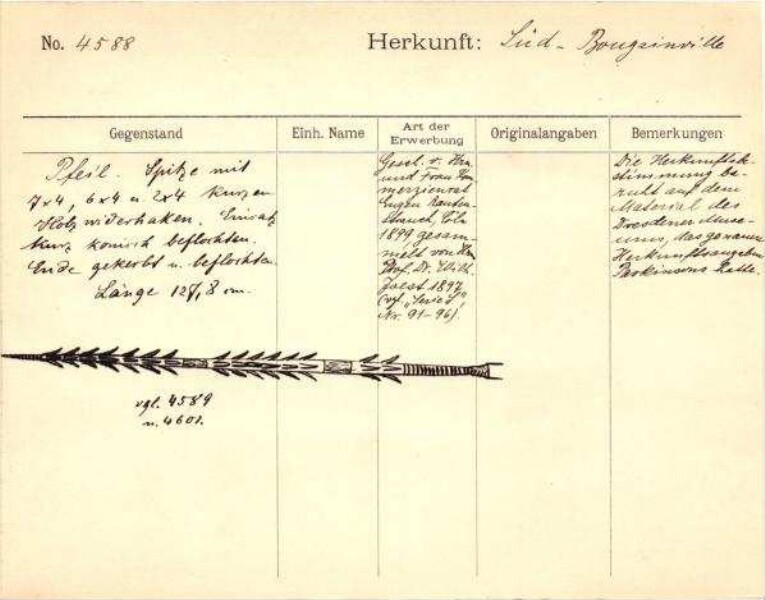 No. 4588 Herkunft: Süd-Bougainville
Gegenstand
Einh. Name
Art der
Erwerbung
Originalangaben
Bemerkungen
Pfeil. Spitze mit
7x4, 6x4 u. 2x4 kurzen
Holzwiderhaken. Einsatz
kurz konisch beflochten.
Ende gekerbt u. beflochten.
Länge 127,8 cm.
Gesch. v. Hrn.
und Frau Kom-
merzienrat
Eugen Rauten-
strauch, Cöln
1899 gesam-
melt von Hrn
Prof. Dr. Wilh.
Joest 1897
(vgl. „Serie I",
Nr. 91-96).
Die Herkunftsbe-
stimmung be-
ruht auf dem
Material des
Dresdener Muse-
ums, das genaue
Herkunftsangaben
Parkinsons hatte.
vgl. 4589
u. 4601.